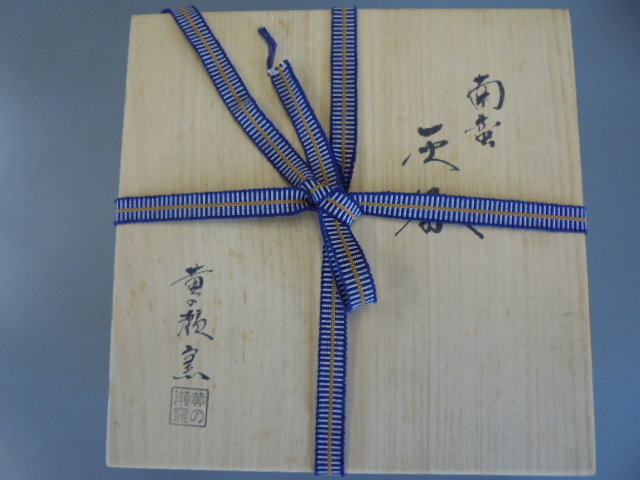 南蛮
灰器
黄の瀬窯
黄の
瀬窯